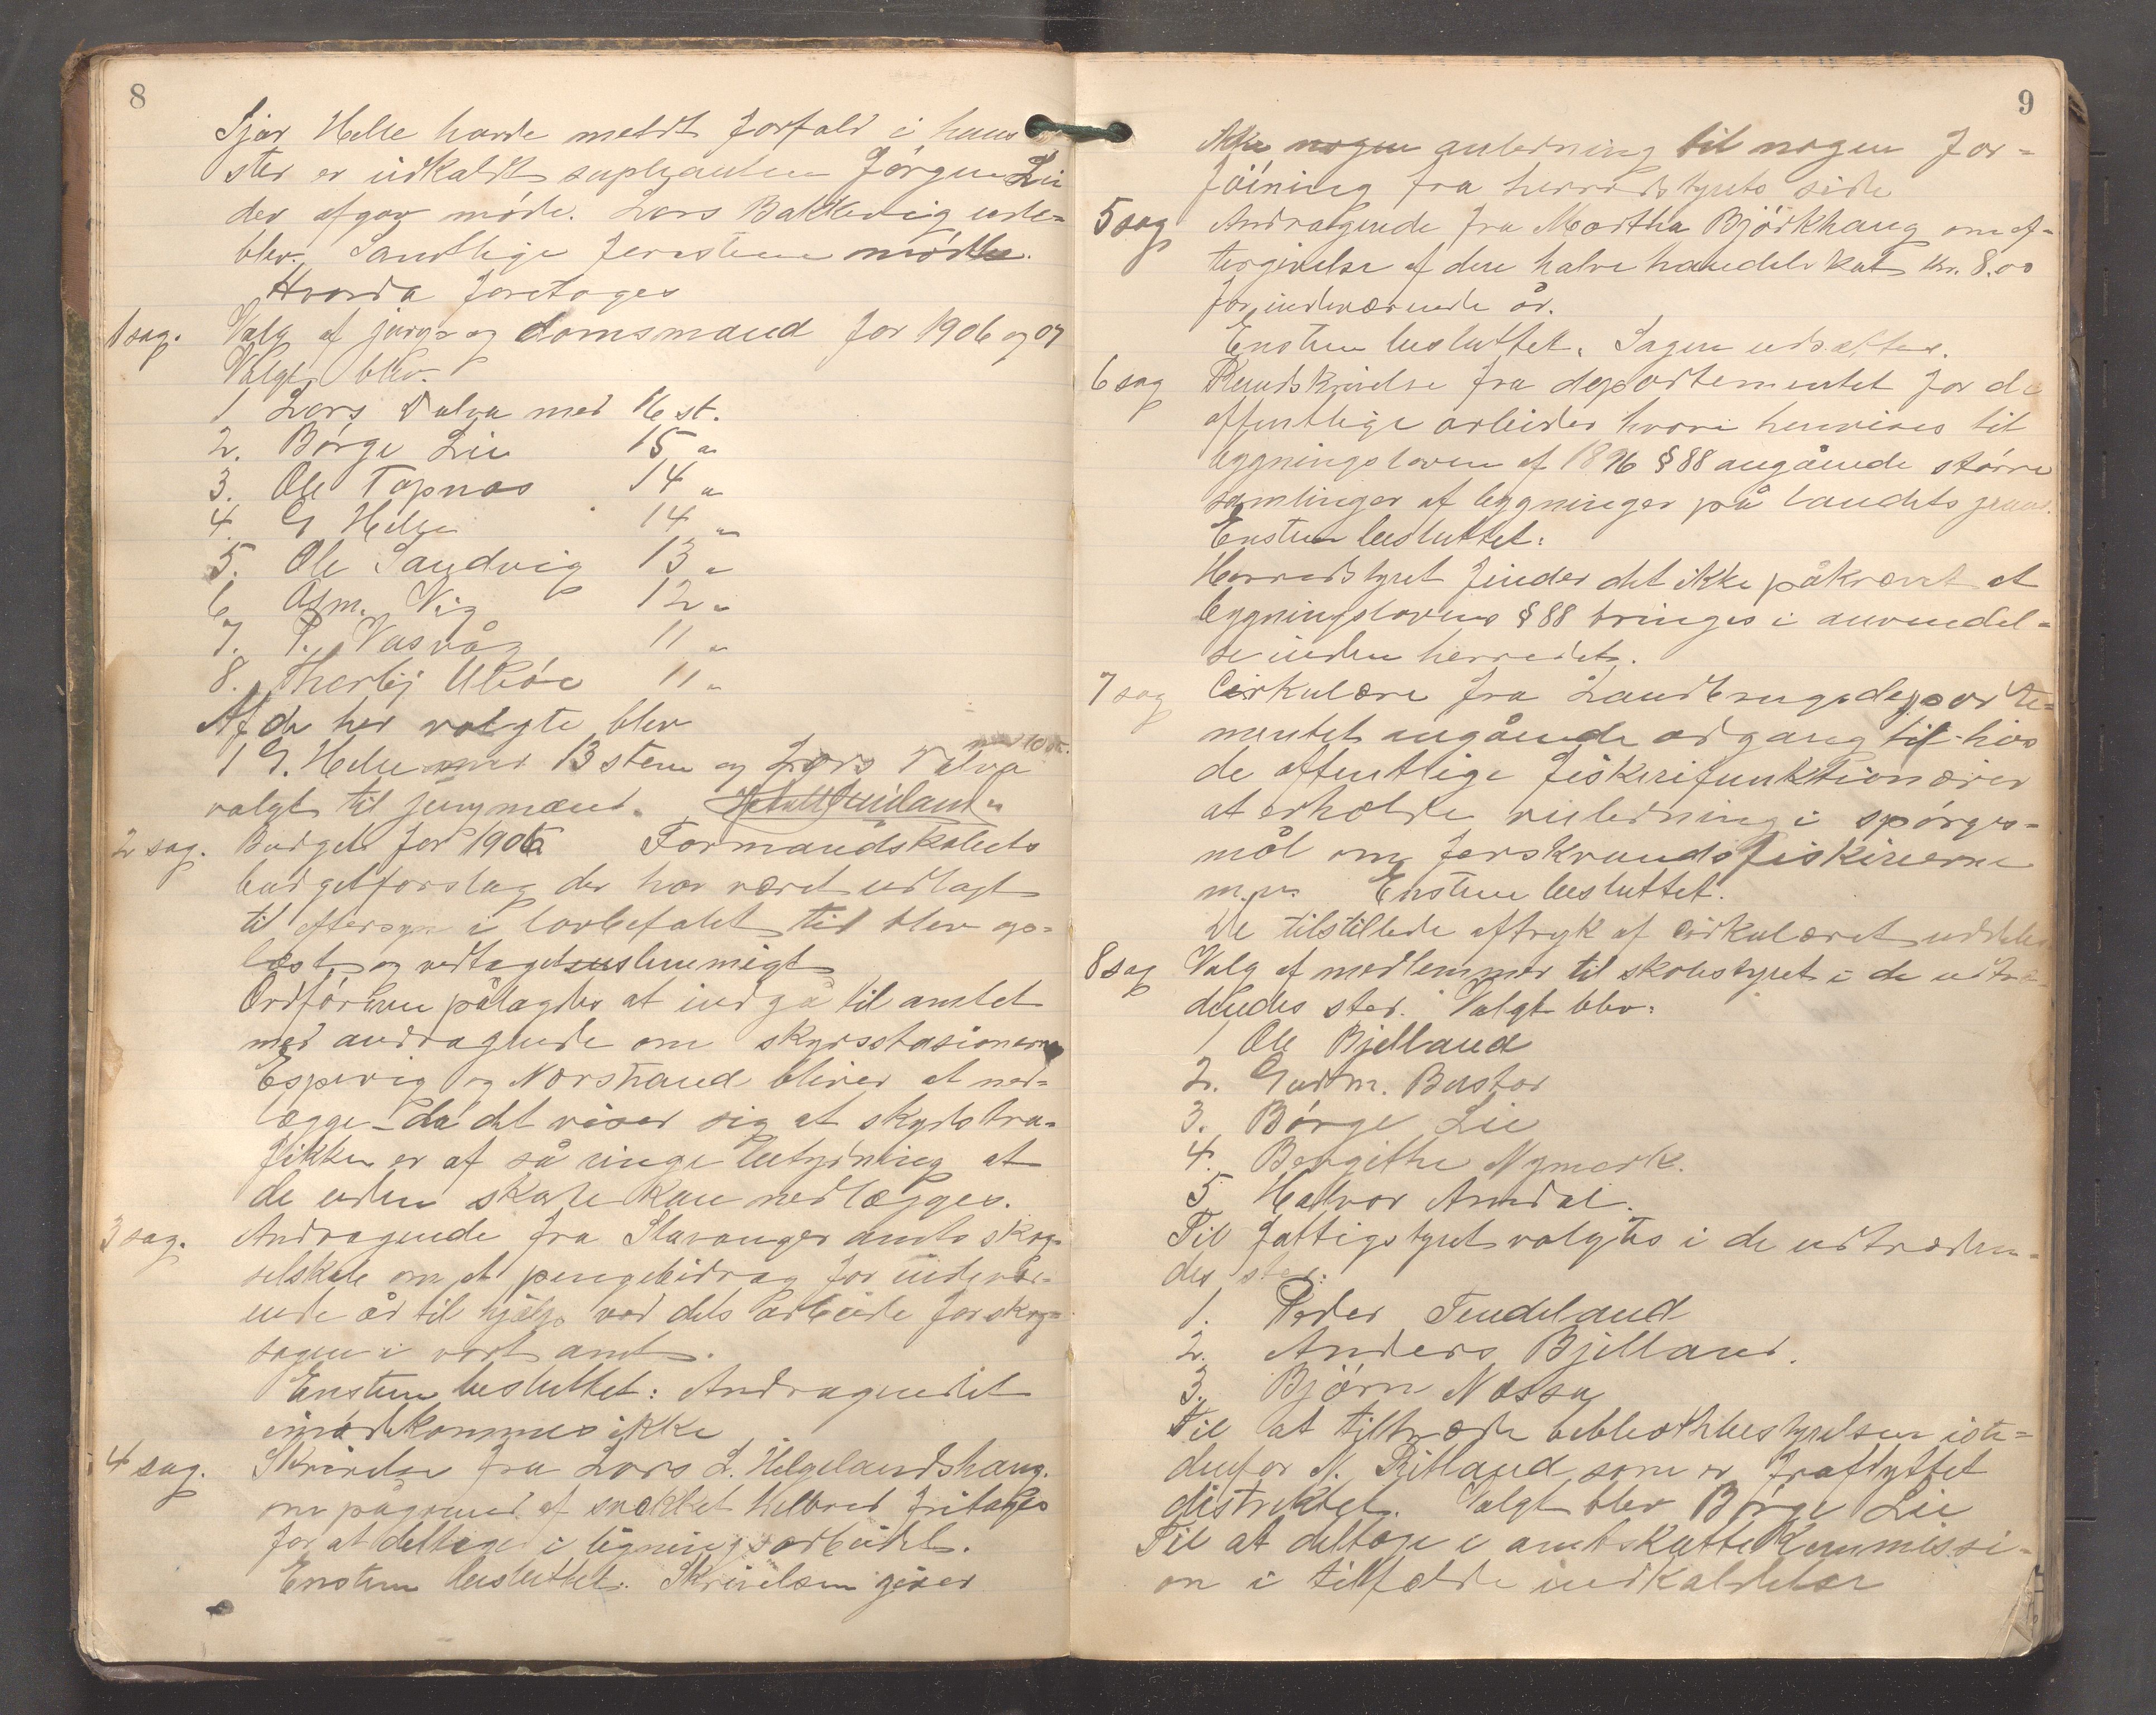 8
Sjar Helle havde meldt forfald i hans
sted er udkaldt suplianten Jørgen Lie
der afgav møde. Lars Bakkevig ude-
blev. Samtlige forresten mødte.
Hvorda foretoges
1 sag. Valg af jury- og domsmænd for 1906 og 07
Valgt blev.
1 Lars Dalva med 16 st.
2. Børge Lie 15 "
3. Ole Tapnas 14 "
4. G Helle 14 "
5. Ole Sandvig 13 "
6 Asm. Vig 12 "
7. P. Vasvåg 11 "
8. Thorbj Ubøe 11 "
Af de her valgte blev
med 10 st.
1 G. Helle med 13 stem og Lars Dalva
valgt til jurymænd.
2 sag. Budget for 1906 Formandskabets
budgetforslag der har været udlagt
til eftersyn i lovbefalet tid blev op-
læst og vedtaget enstemmigt
Ordføreren pålagdes at indgå til amtet
med andragende om skydsstasionerne
Espevig og Norstrand bliver at ned-
lægge - da det viser sig at skydstra-
fikken er af så ringe betydning at
de uden skade kan nedlægges.
3 sag. Andragende fra Stavanger amts skog-
selskab om et pengebidrag for indevær-
ende år til hjælp ved dets arbeide for skog-
sagen i vort amt.
Enstem besluttet: Andragendet
imødekommes ikke
4 sag. Skrivelse fra Lars L. Helgelandshaug.
om pågrund af svækket helbred fritages
for at deltage i ligningsarbeidet.
Enstem besluttet: Skrivelsen giver
9
ikke nogen anledning til nogen for-
føining fra herredstyrets side
5 sag Andragende fra Martha Bjørkhaug om ef-
tergivelse af den halve handelskat kr. 8.00
for indeværende år.
Enstem besluttet. Sagen udsættes.
6 sag Rundskrivelse fra departementet for de
offentlige arbeider hvori henvises til
bygningsloven af 1896 § 88 angående større
samlinger af bygninger på landets grund.
Enstem besluttet:
Herredstyret finder det ikke påkrævet at
bygningslovens § 88 bringes i anvendel-
se inden herredet.
7 sag Cirkulære fra Landbrugsdeparte-
mentet angående adgang til hos
de offentlige fiskerifunktionærer
at erholde veiledning i spørgs-
mål om ferskvandsfiskerierne
m.v. Enstem besluttet.
De tilstillede aftryk af cirkulæret uddeles
8 sag Valg af medlemmer til skolestyret i de udtræ-
dendes sted. Valgt blev:
1 Ole Bjelland
2. Gudm. Bastor
3. Børge Lie
4. Bergithe Nymark.
5 Halvor Amdal.
Til fattigstyret valgtes i de udtræden-
des sted:
1. Peder Tendeland
2. Anders Bjelland.
3. Bjørn Nessa
Til at tiltræde bibliothekbestyrelsen iste-
denfor N. Ritland som er fraflyttet
distriktet. Valgt blev Børge Lie
Til at deltage i amtskattekommissi-
on i tilfælde indkaldelse